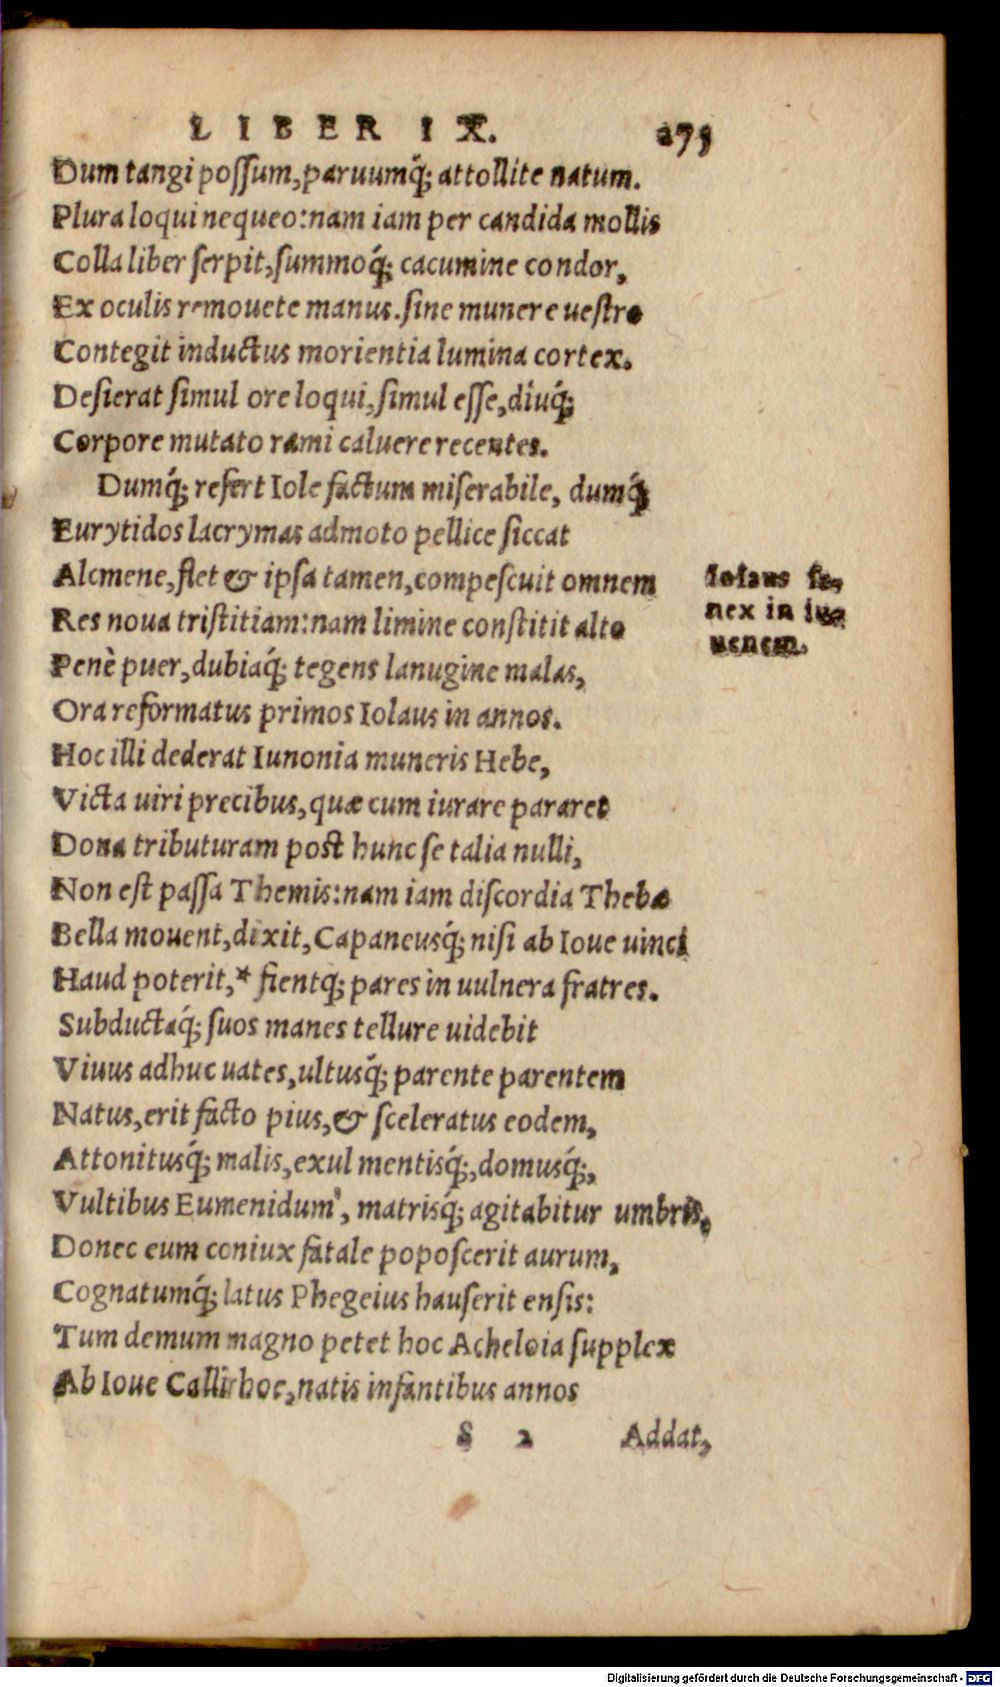 LIBER IX. 275
Dum tangi possum, paruumq́; attollite natum.
Plura loqui nequeo: nam iam per candida mollis
Colla liber serpit, summoq́; cacumine condor,
Ex oculis remouete manus. sine munere uestro
Contegit inductus morientia lumina cortex.
Desierat simul ore loqui, simul esse, diuq́;
Corpore mutato rami caluere recentes.
Dumq́; refert Iole factum miserabile, dumq́;
Eurytidos lacrymas admoto pellice siccat
Alcmene, flet & ipsa tamen, compescuit omnem
Res noua tristitiam: nam limine constitit alto
Penè puer, dubiaq́; tegens lanugine malas,
Ora reformatus primos Iolaus in annos.
Hoc illi dederat Iunonia muneris Hebe,
Victa uiri precibus, quæ cum iurare pararet
Dona tributuram post hunc se talia nulli,
Non est passa Themis: nam iam discordia Thebæ
Bella mouent, dixit, Capaneusq́; nisi ab Ioue uinci
Haud poterit,* fientq; pares in uulnera fratres.
Subductaq́; suos manes tellure uidebit
Viuus adhuc uates, ultusq́; parente parentem
Natus, erit facto pius, & sceleratus eodem,
Attonitusq́; malis, exul mentisq́;, domusq́;,
Vultibus Eumenidum', matrisq́; agitabitur umbris,
Donec eum coniux fatale poposcerit aurum,
Cognatumq́; latus Phegeius hauserit ensis:
Tum demum magno petet hoc Acheloia supplex
Ab Ioue Callirhoe, natis infantibus annos
S 2 Addat,
Iolaus se,
nex in iuu
uenem.
Digitalisierung gefördert durch die Deutsche Forschungsgemeinschaft - DFG